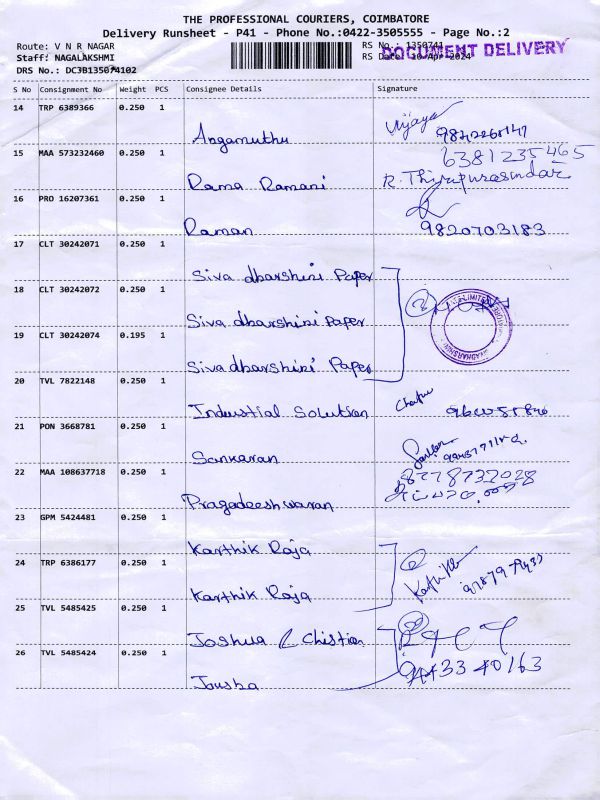 THE PROFESSIONAL COURIERS, COIMBATORE
Delivery Runsheet - P41 - Phone No.:0422-3505555 - Page No.:2
Route: V N R NAGAR RS No.: 1350741
Staff: NAGALAKSHMI RS Date: 10-Apr-2024
DOCUMENT DELIVERY
DRS No.: DC3B135074102
S No Consignment No Weight PCS Consignee Details Signature
14 TRP 6389366 0.250 1
Angamuthu Vijaya
15 MAA 573232460 0.250 1 6381235465
Rama Ramani R. Thirupurasundar
16 PRO 16207361 0.250 1
Raman 9820703183
17 CLT 30242071 0.250 1
Siva dharshini Paper
18 CLT 30242072 0.250 1
Siva dharshini Paper
19 CLT 30242074 0.195 1
Siva dharshini Paper
20 TVL 7822148 0.250 1
Industrial Solution
21 PON 3668781 0.250 1
Sankaran
22 MAA 108637718 0.250 1 8778732028
Pragadeeshwaran
23 GPM 5424481 0.250 1
Karthik Raja
24 TRP 6386177 0.250 1
Karthik Raja
25 TVL 5485425 0.250 1
Joshua Chistian
26 TVL 5485424 0.250 1
Jousha 9443340163